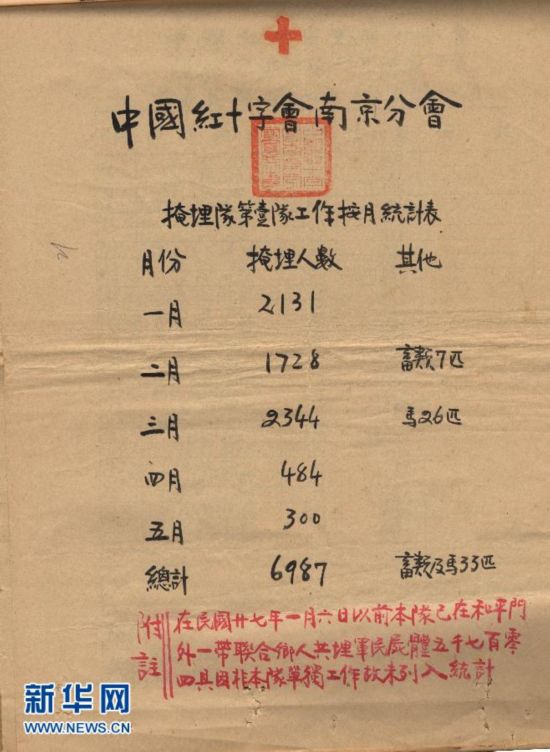 中國紅十字會南京分會
掩埋隊第壹隊工作按月統計表
月份 掩埋人數 其他
一月 2131
二月 1728 畜類7匹
三月 2344 馬26匹
四月 484
五月 300
總計 6987 畜類及馬33匹
附註 在民國廿七年一月六日以前本隊已在和平門
外一帶联合鄉人共埋軍民屍體五千七百零
四具因非本隊單獨工作故未列入統計
新华网
WWW.NEWS.CN